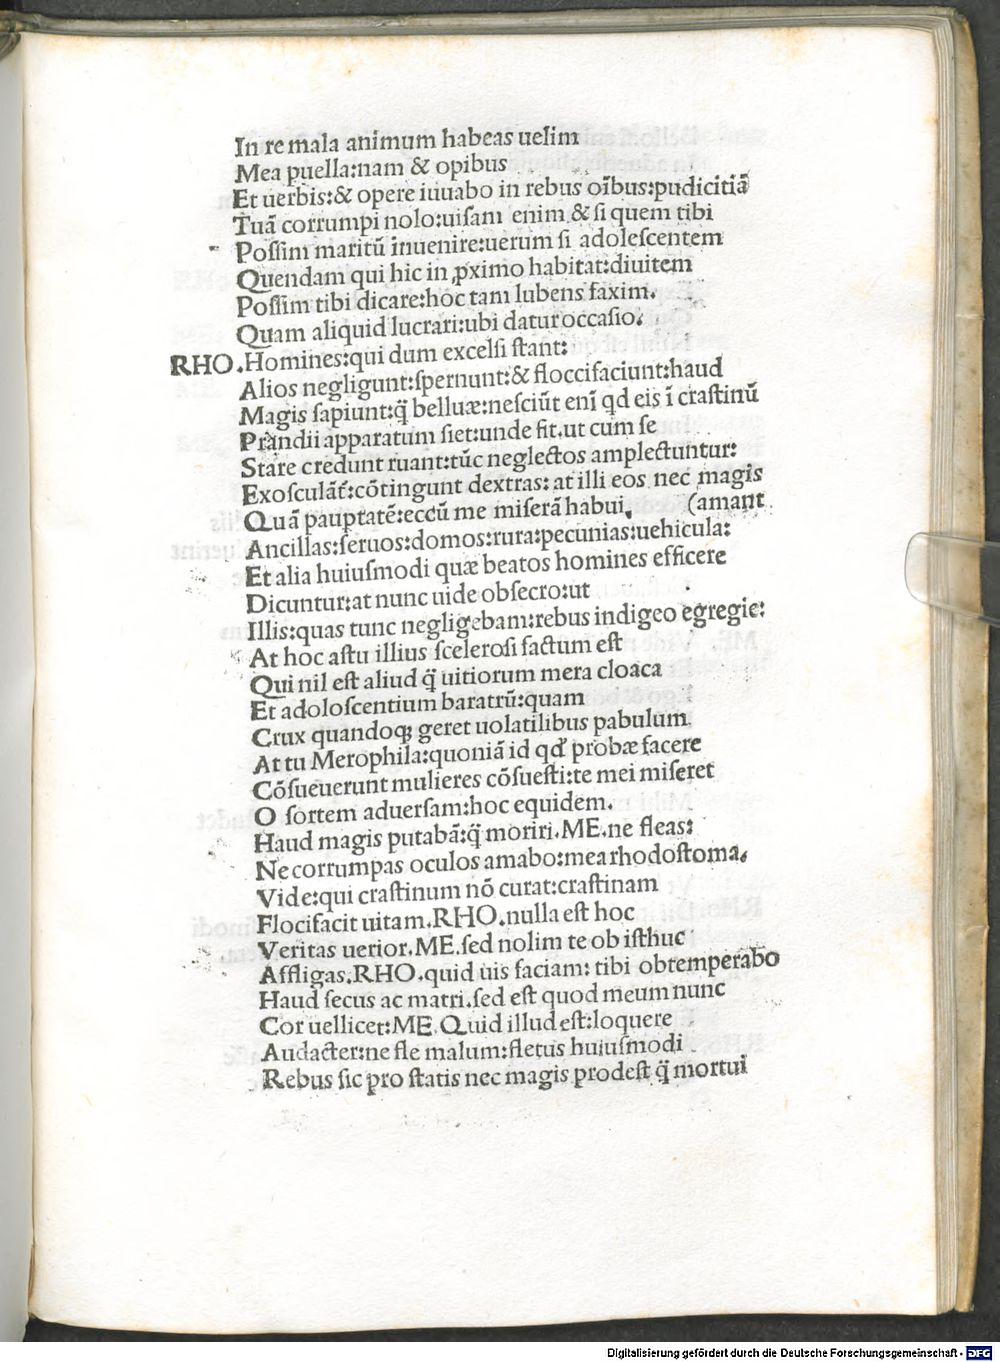 In re mala animum habeas uelim
Mea puella:nam & opibus
Et uerbis:& opere iuuabo in rebus oĩbus:pudicitiã
Tuã corrumpi nolo:uiſam enim & ſi quem tibi
Poſſim maritũ inuenire:uerum ſi adoleſcentem
Quendam qui hic in ꝓximo habitat:diuitem
Poſſim tibi dicare:hoc tam lubens faxim.
Quam aliquid lucrari:ubi datur occaſio.
RHO.Homines:qui dum excelſi ſtant:
Alios negligunt:ſpernunt:& floccifaciunt:haud
Magis ſapiunt:q̃ belluæ:neſciũt enĩ qd eis ĩ craſtinũ
Prandii apparatum ſiet:unde fit.ut cum ſe
Stare credunt ruant:tũc neglectos amplectuntur:
Exoſculãt̃:cõtingunt dextras: at illi eos nec magis
Quã pauptatẽ:eccũ me miſerã habui, (amant
Ancillas:ſeruos:domos:rura:pecunias:uehicula:
Et alia huiuſmodi quæ beatos homines efficere
Dicuntur:at nunc uide obſecro:ut
Illis:quas tunc negligebam:rebus indigeo egregie:
At hoc aſtu illius ſceleroſi factum eſt
Qui nil eſt aliud q̃ uitiorum mera cloaca
Et adoloſcentium baratrũ:quam
Crux quandoqꝫ geret uolatilibus pabulum
At tu Merophila:quoniã id qđ probæ facere
Cõſueuerunt mulieres cõſueſti:te mei miſeret
O ſortem aduerſam:hoc equidem.
Haud magis putabã:q̃ moriri.ME.ne fleas:
Ne corrumpas oculos amabo:mea rhodoſtoma,
Vide:qui craſtinum nõ curat:craſtinam
Flocifacit uitam.RHO.nulla eſt hoc
Veritas uerior.ME.ſed nolim te ob iſthuc
Affligas.RHO.quid uis faciam: tibi obtemperabo
Haud ſecus ac matri.ſed eſt quod meum nunc
Cor uellicet:ME.Quid illud eſt:loquere
Audacter:ne fle malum:fletus huiuſmodi
Rebus ſic pro ſtatis nec magis prodeſt q̃ mortui
Digitalisierung gefördert durch die Deutsche Forschungsgemeinschaft - DFG